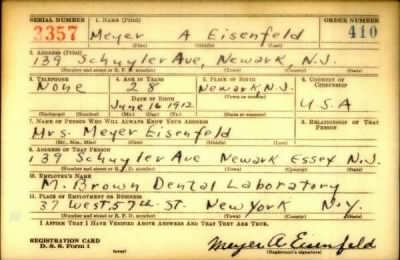 SERIAL NUMBER 1. NAME (Print) ORDER NUMBER
3357 Meyer A Eisenfeld 410
(First) (Middle) (Last)
2. ADDRESS (Print)
139 Schuyler Ave, Newark, N.J.
(Number and street or R. F. D. number) (Town) (County) (State)
3. TELEPHONE 4. AGE IN YEARS 5. PLACE OF BIRTH 6. COUNTRY OF CITIZENSHIP
None 28 Newark N.J.
DATE OF BIRTH (Town or county)
June 16 1912 U S A
(Exchange) (Number) (Mo.) (Day) (Yr.) (State or country)
7. NAME OF PERSON WHO WILL ALWAYS KNOW YOUR ADDRESS 8. RELATIONSHIP OF THAT PERSON
Mrs. Meyer Eisenfeld
(Mr., Mrs., Miss) (First) (Middle) (Last)
9. ADDRESS OF THAT PERSON
139 Schuyler Ave Newark Essex N.J.
(Number and street or R. F. D. number) (Town) (County) (State)
10. EMPLOYER'S NAME
M. Brown Dental Laboratory
11. PLACE OF EMPLOYMENT OR BUSINESS
37 West, 57th. St. New York N.Y.
(Number and street or R. F. D. number) (Town) (County) (State)
I AFFIRM THAT I HAVE VERIFIED ABOVE ANSWERS AND THAT THEY ARE TRUE.
REGISTRATION CARD
D. S. S. Form 1 Meyer A Eisenfeld
(Registrant's signature)